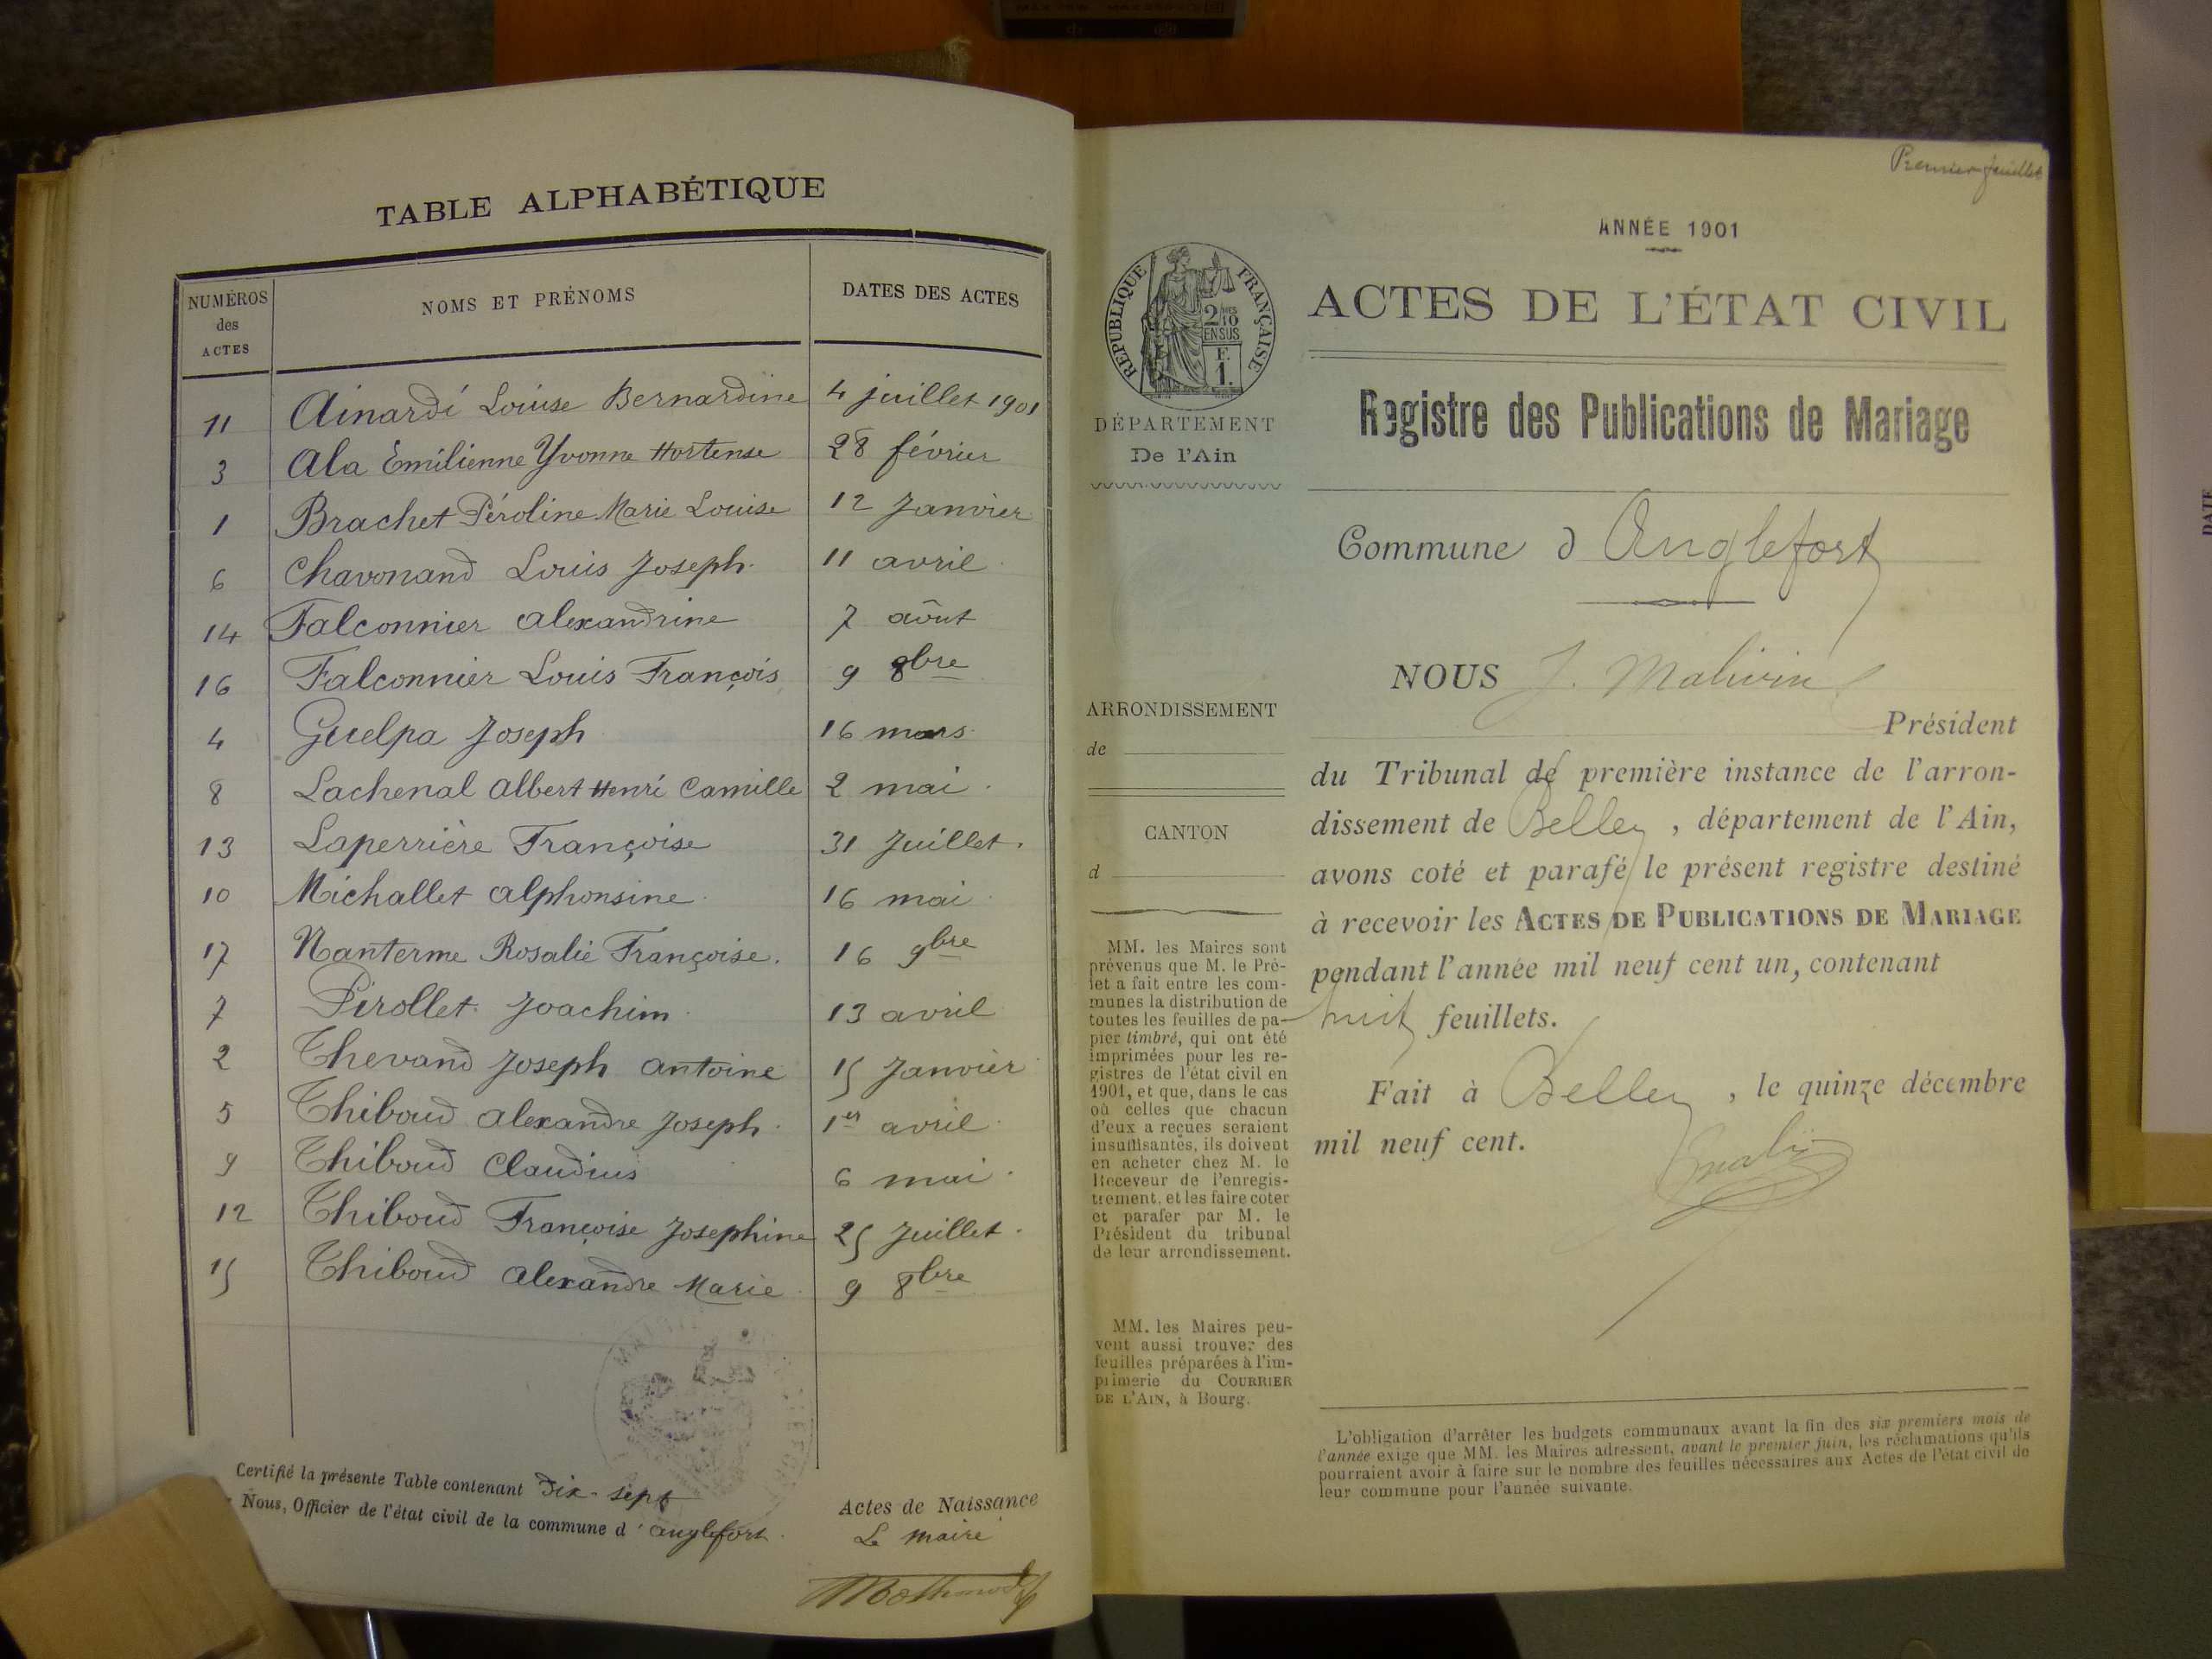 TABLE ALPHABÉTIQUE
NUMÉROS des ACTES NOMS ET PRÉNOMS DATES DES ACTES
11 Ainardi Louise Bernardine 4 juillet 1901
3 Ala Emilienne Yvonne Hortense 28 février
1 Brachet Péroline Marie Louise 12 Janvier
6 Chavonand Louis Joseph. 11 avril
14 Falconnier Alexandrine 7 aôut
16 Falconnier Louis François 9 8bre
4 Guelpa Joseph 16 mars
8 Lachenal Albert Henri Camille 2 mai
13 Laperrière Françoise 31 Juillet.
10 Michallet Alphonsine 16 mai
17 Nanterme Rosalie Françoise. 16 9bre
7 Pirollet Joachim 13 avril
2 Thevand Joseph Antoine 15 Janvier
5 Thiboud Alexandre Joseph 1er avril
9 Thiboud Claudius 6 mai
12 Thiboud Françoise Josephine 25 Juillet
15 Thiboud Alexandre Marie 9 8bre
Certifié la présente Table contenant Dix-sept Actes de Naissance
Nous, Officier de l'état civil de la commune d'Anglefort. Le Maire
Premier feuillet
ANNÉE 1901
RÉPUBLIQUE FRANÇAISE
2/10 EN SUS
F. 1.
ACTES DE L'ÉTAT CIVIL
DÉPARTEMENT
De l'Ain
Registre des Publications de Mariage
Commune d Anglefort
ARRONDISSEMENT
de
CANTON
d
MM. les Maires sont
prévenus que M. le Pré-
fet a fait entre les com-
munes la distribution de
toutes les feuilles de pa-
pier timbré, qui ont été
imprimées pour les re-
gistres de l'état civil en
1901, et que, dans le cas
où celles que chacun
d'eux a reçues seraient
insuffisantes, ils doivent
en acheter chez M. le
Receveur de l'enregis-
trement, et les faire coter
et parafer par M. le
Président du tribunal
de leur arrondissement.
MM. les Maires peu-
vent aussi trouver des
feuilles préparées à l'im-
primerie du COURRIER
DE L'AIN, à Bourg.
NOUS J.
Président
du Tribunal de première instance de l'arron-
dissement de Belley, département de l'Ain,
avons coté et parafé le présent registre destiné
à recevoir les ACTES DE PUBLICATIONS DE MARIAGE
pendant l'année mil neuf cent un, contenant
huit feuillets.
Fait à Belley, le quinze décembre
mil neuf cent.
L'obligation d'arrêter les budgets communaux avant la fin des six premiers mois de
l'année exige que MM. les Maires adressent, avant le premier juin, les réclamations qu'ils
pourraient avoir à faire sur le nombre des feuilles nécessaires aux Actes de l'état civil de
leur commune pour l'année suivante.
DATE